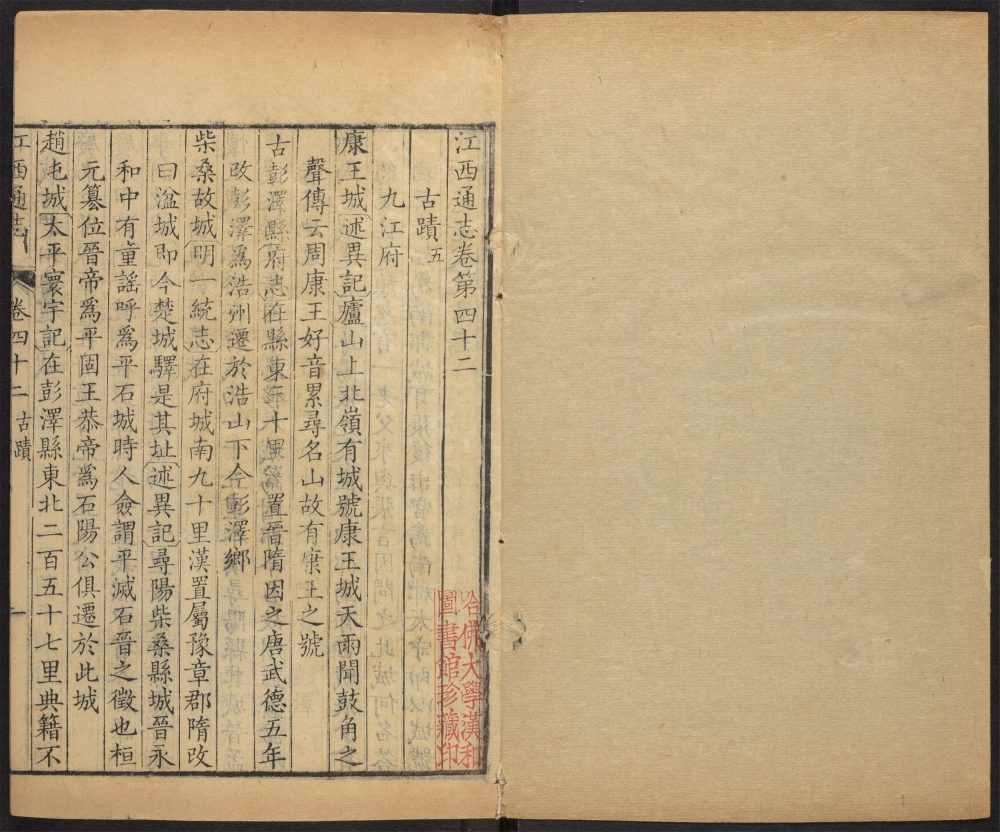 江西通志卷第四十二
古蹟五
九江府
康王城述異記廬山上北嶺有城號康王城天雨聞鼓角之
聲傳云周康王好音累尋名山故有康王之號
古彭澤縣府志在縣東 十里 置晉隋因之唐武德五年
改彭澤爲浩州遷於浩山下今彭澤鄉
柴桑故城明一統志在府城南九十里漢置屬豫章郡隋改
曰湓城即今楚城驛是其址述異記尋陽柴桑縣城晉永
和中有童謠呼爲平石城時人僉謂平滅石晉之徵也桓
元篡位晉帝爲平固王恭帝爲石陽公俱遷於此城
趙屯城太平寰宇記在彭澤縣東北二百五十七里典籍不
江西通志 卷四十二 古蹟 一
哈佛大學漢和
圖書館珍藏印